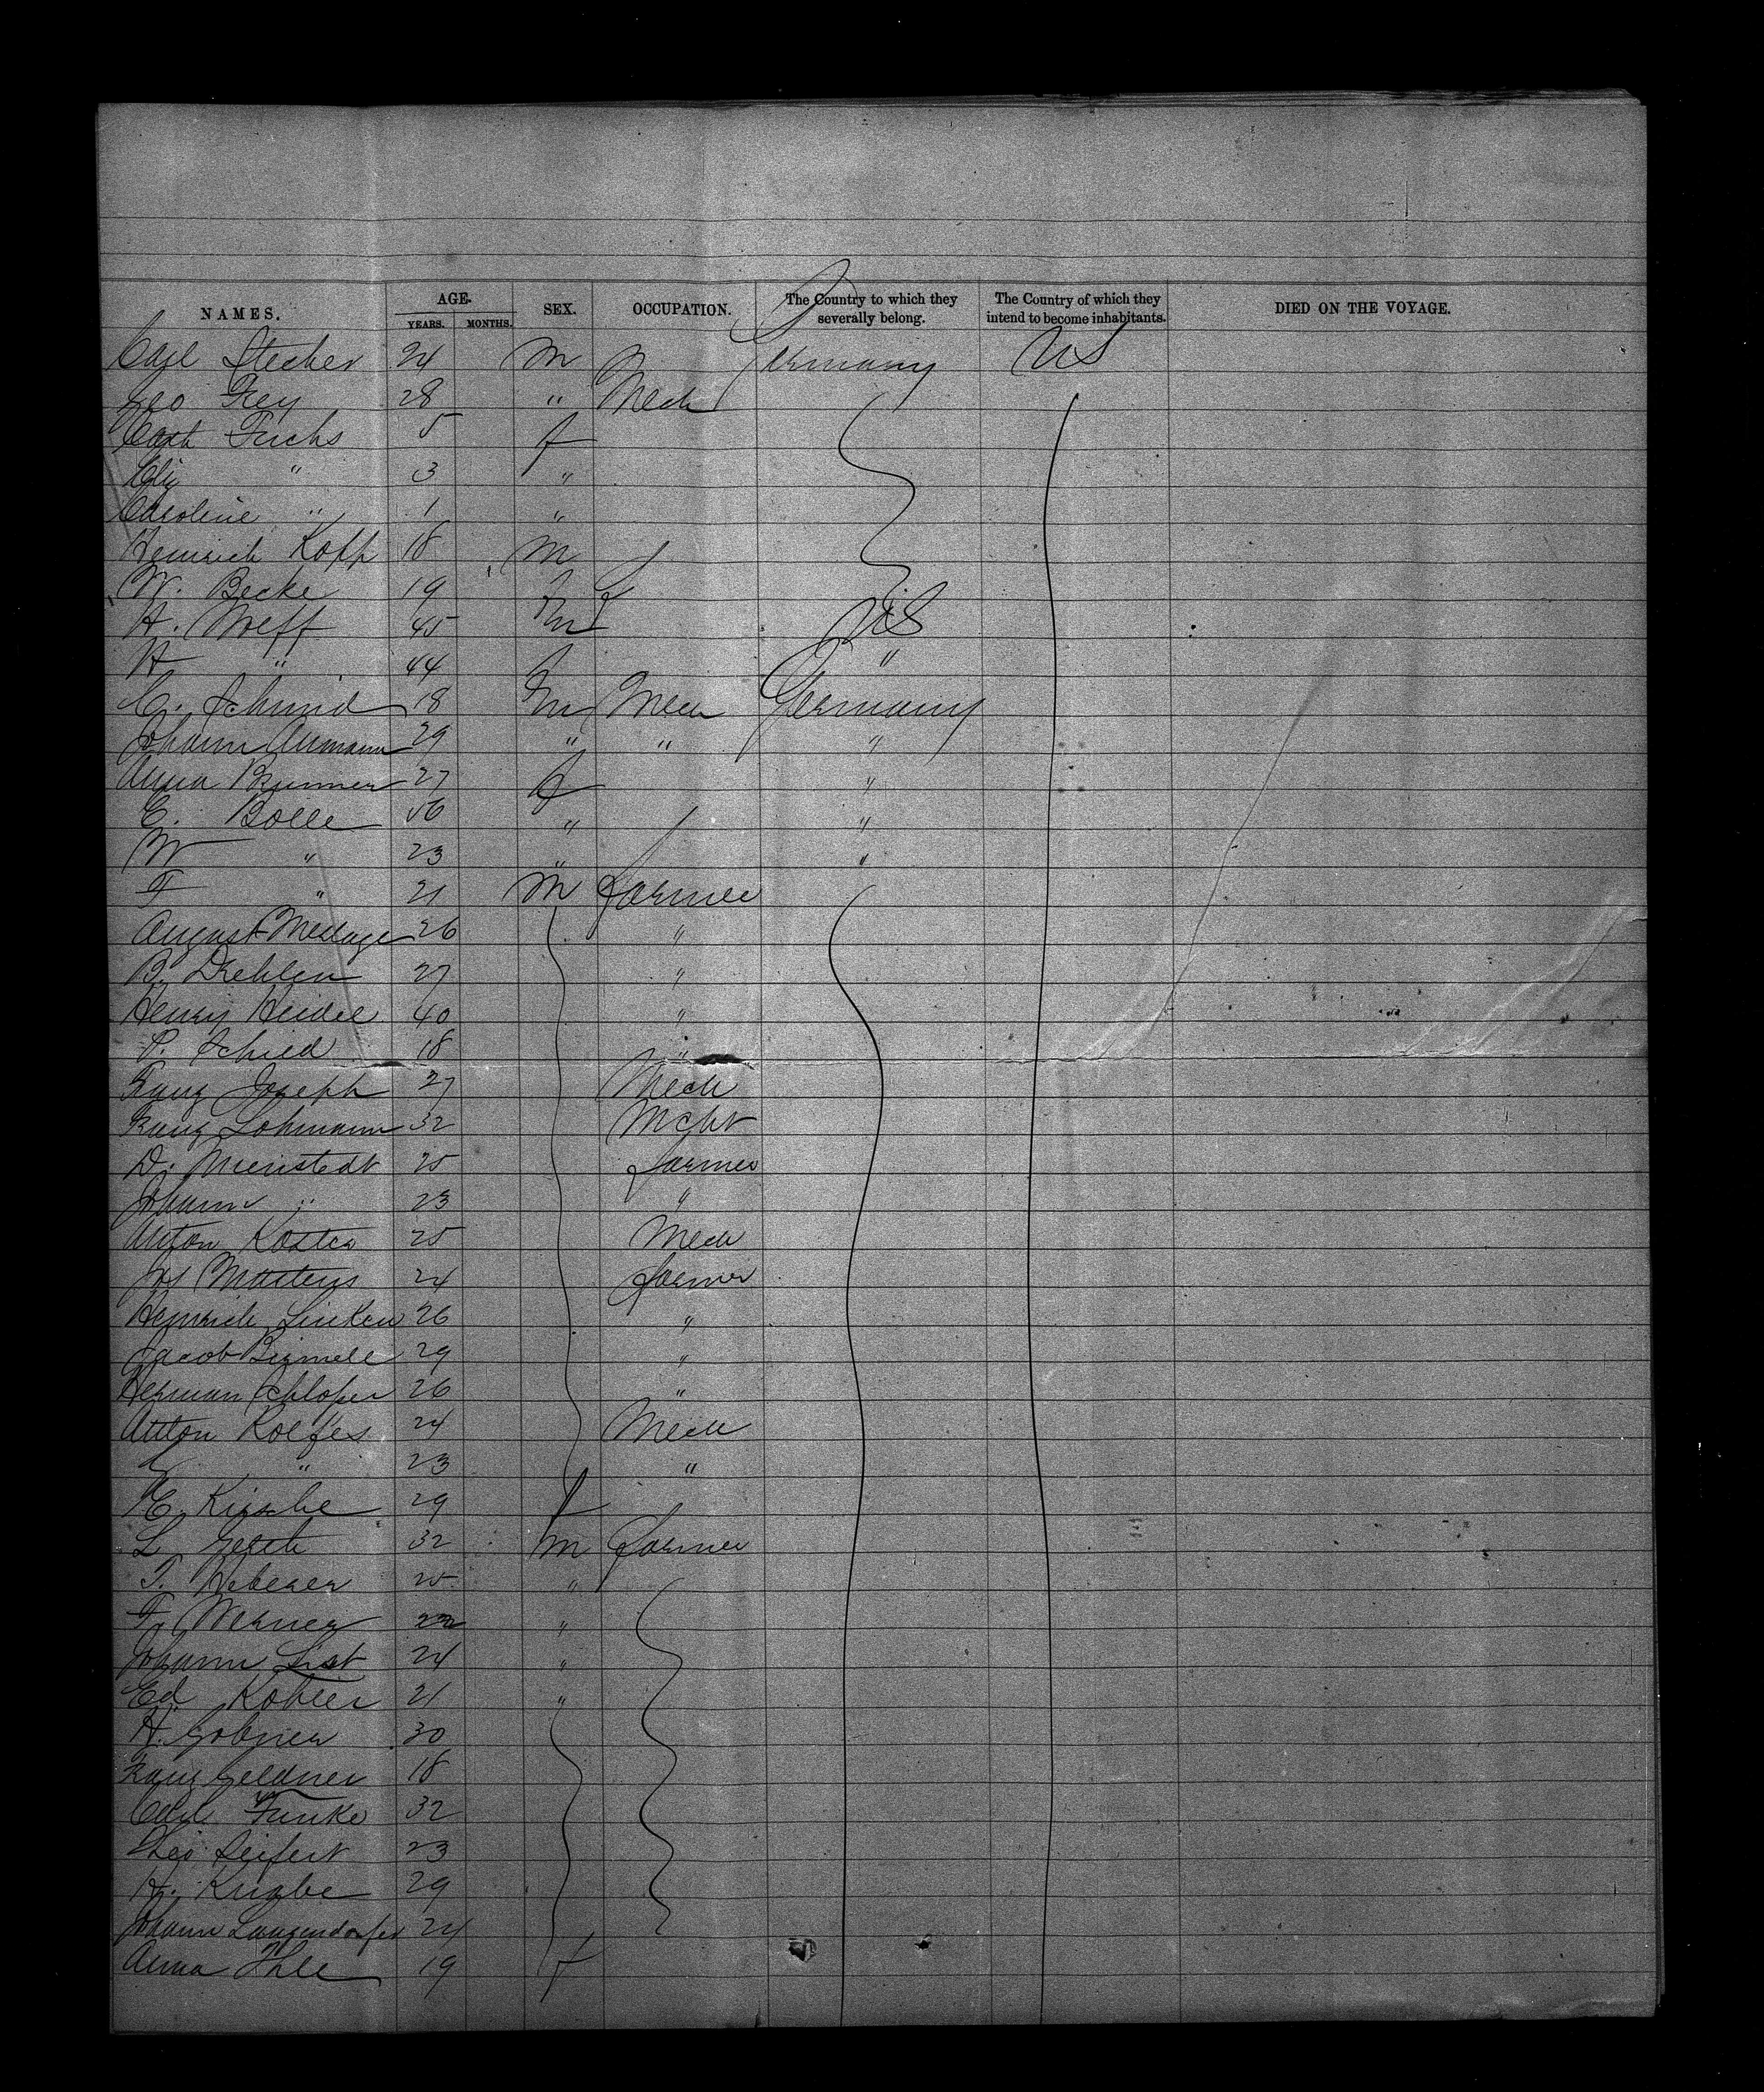 NAMES. AGE. SEX. OCCUPATION. The Country to which they severally belong. The Country of which they intend to become inhabitants. DIED ON THE VOYAGE.
YEARS. MONTHS.
Carl Stecher 24 m Mech Germany US
Geo Frey 28 " Mech
Cath Fuchs 5 f
" 3 "
Caroline " 1 "
Heinrich Kopp 18 m
W. Becke 19 f
H. Neff 45 m US
H " 44 f "
C. Schmid 18 m Mech Germany
Johann Aumann 29 " " "
Anna Brunner 27 f "
E. Bolle 56 " "
W " 23 " "
F " 21 m farmer
August 26 "
B. 27 "
Henry Heidel 40 "
P. Schied 18 "
Franz Joseph 27 Mech
Franz Lohmann 32 Mcht
D. Mienstedt 25 farmer
Johann " 23 "
Anton Koster 25 Mech
H Martens 24 farmer
Heinrich Linken 26 "
Jacob 29 "
Herman 26 "
Anton Rolfes 24 Mech
" 23 "
E. 29 f
L 32 m farmer
T. 25 "
F. Werner "
Johann List 24 "
Ed Kohler 21 "
H. 30
Franz Geldner 18
Carl Funke 32
Theo Seifert 23
H. 29
Johann Langendorfer 24
Anna Ihle 19 f